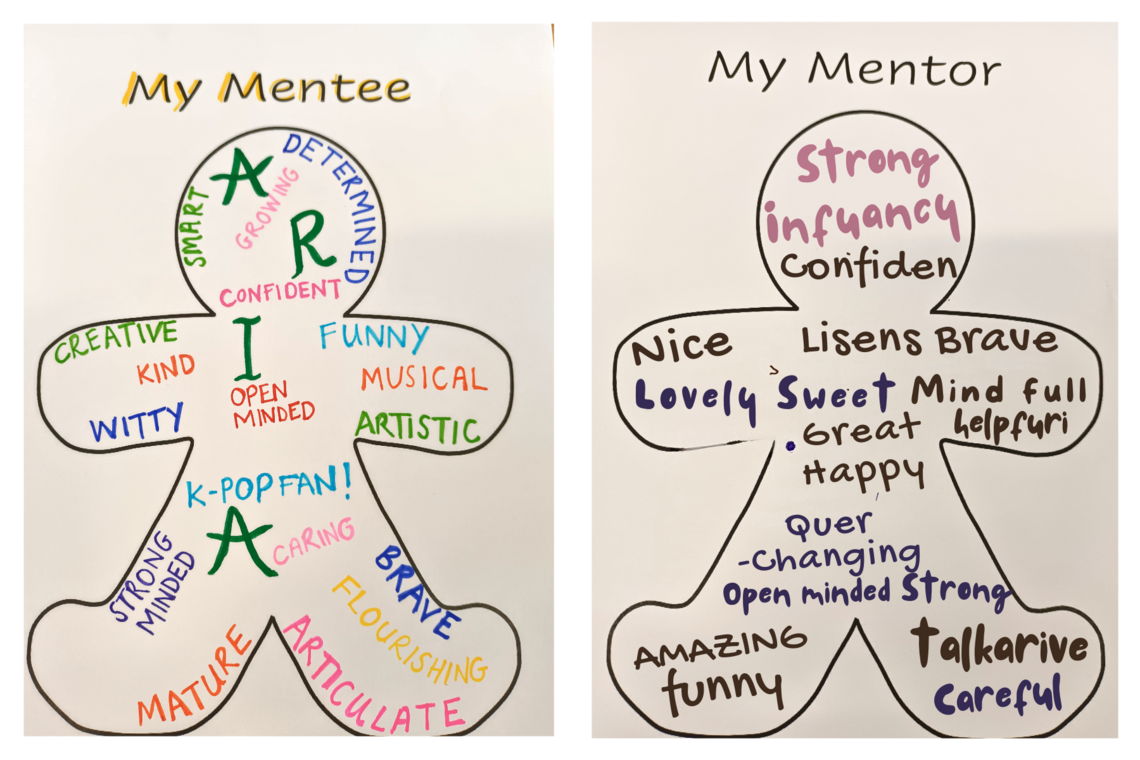 My Mentee
SMART
A
GROWING
DETERMINED
R
CONFIDENT
CREATIVE
KIND
WITTY
I
OPEN
MINDED
FUNNY
MUSICAL
ARTISTIC
K-POP FAN!
A
CARING
STRONG
MINDED
BRAVE
FLOURISHING
MATURE
ARTICULATE
My Mentor
Strong
infyancy
Confiden
Nice
Lisens Brave
Lovely Sweet Mind full
Great helpfuri
Happy
Quer
-Changing
Open minded Strong
AMAZING
funny
Talkarive
Careful